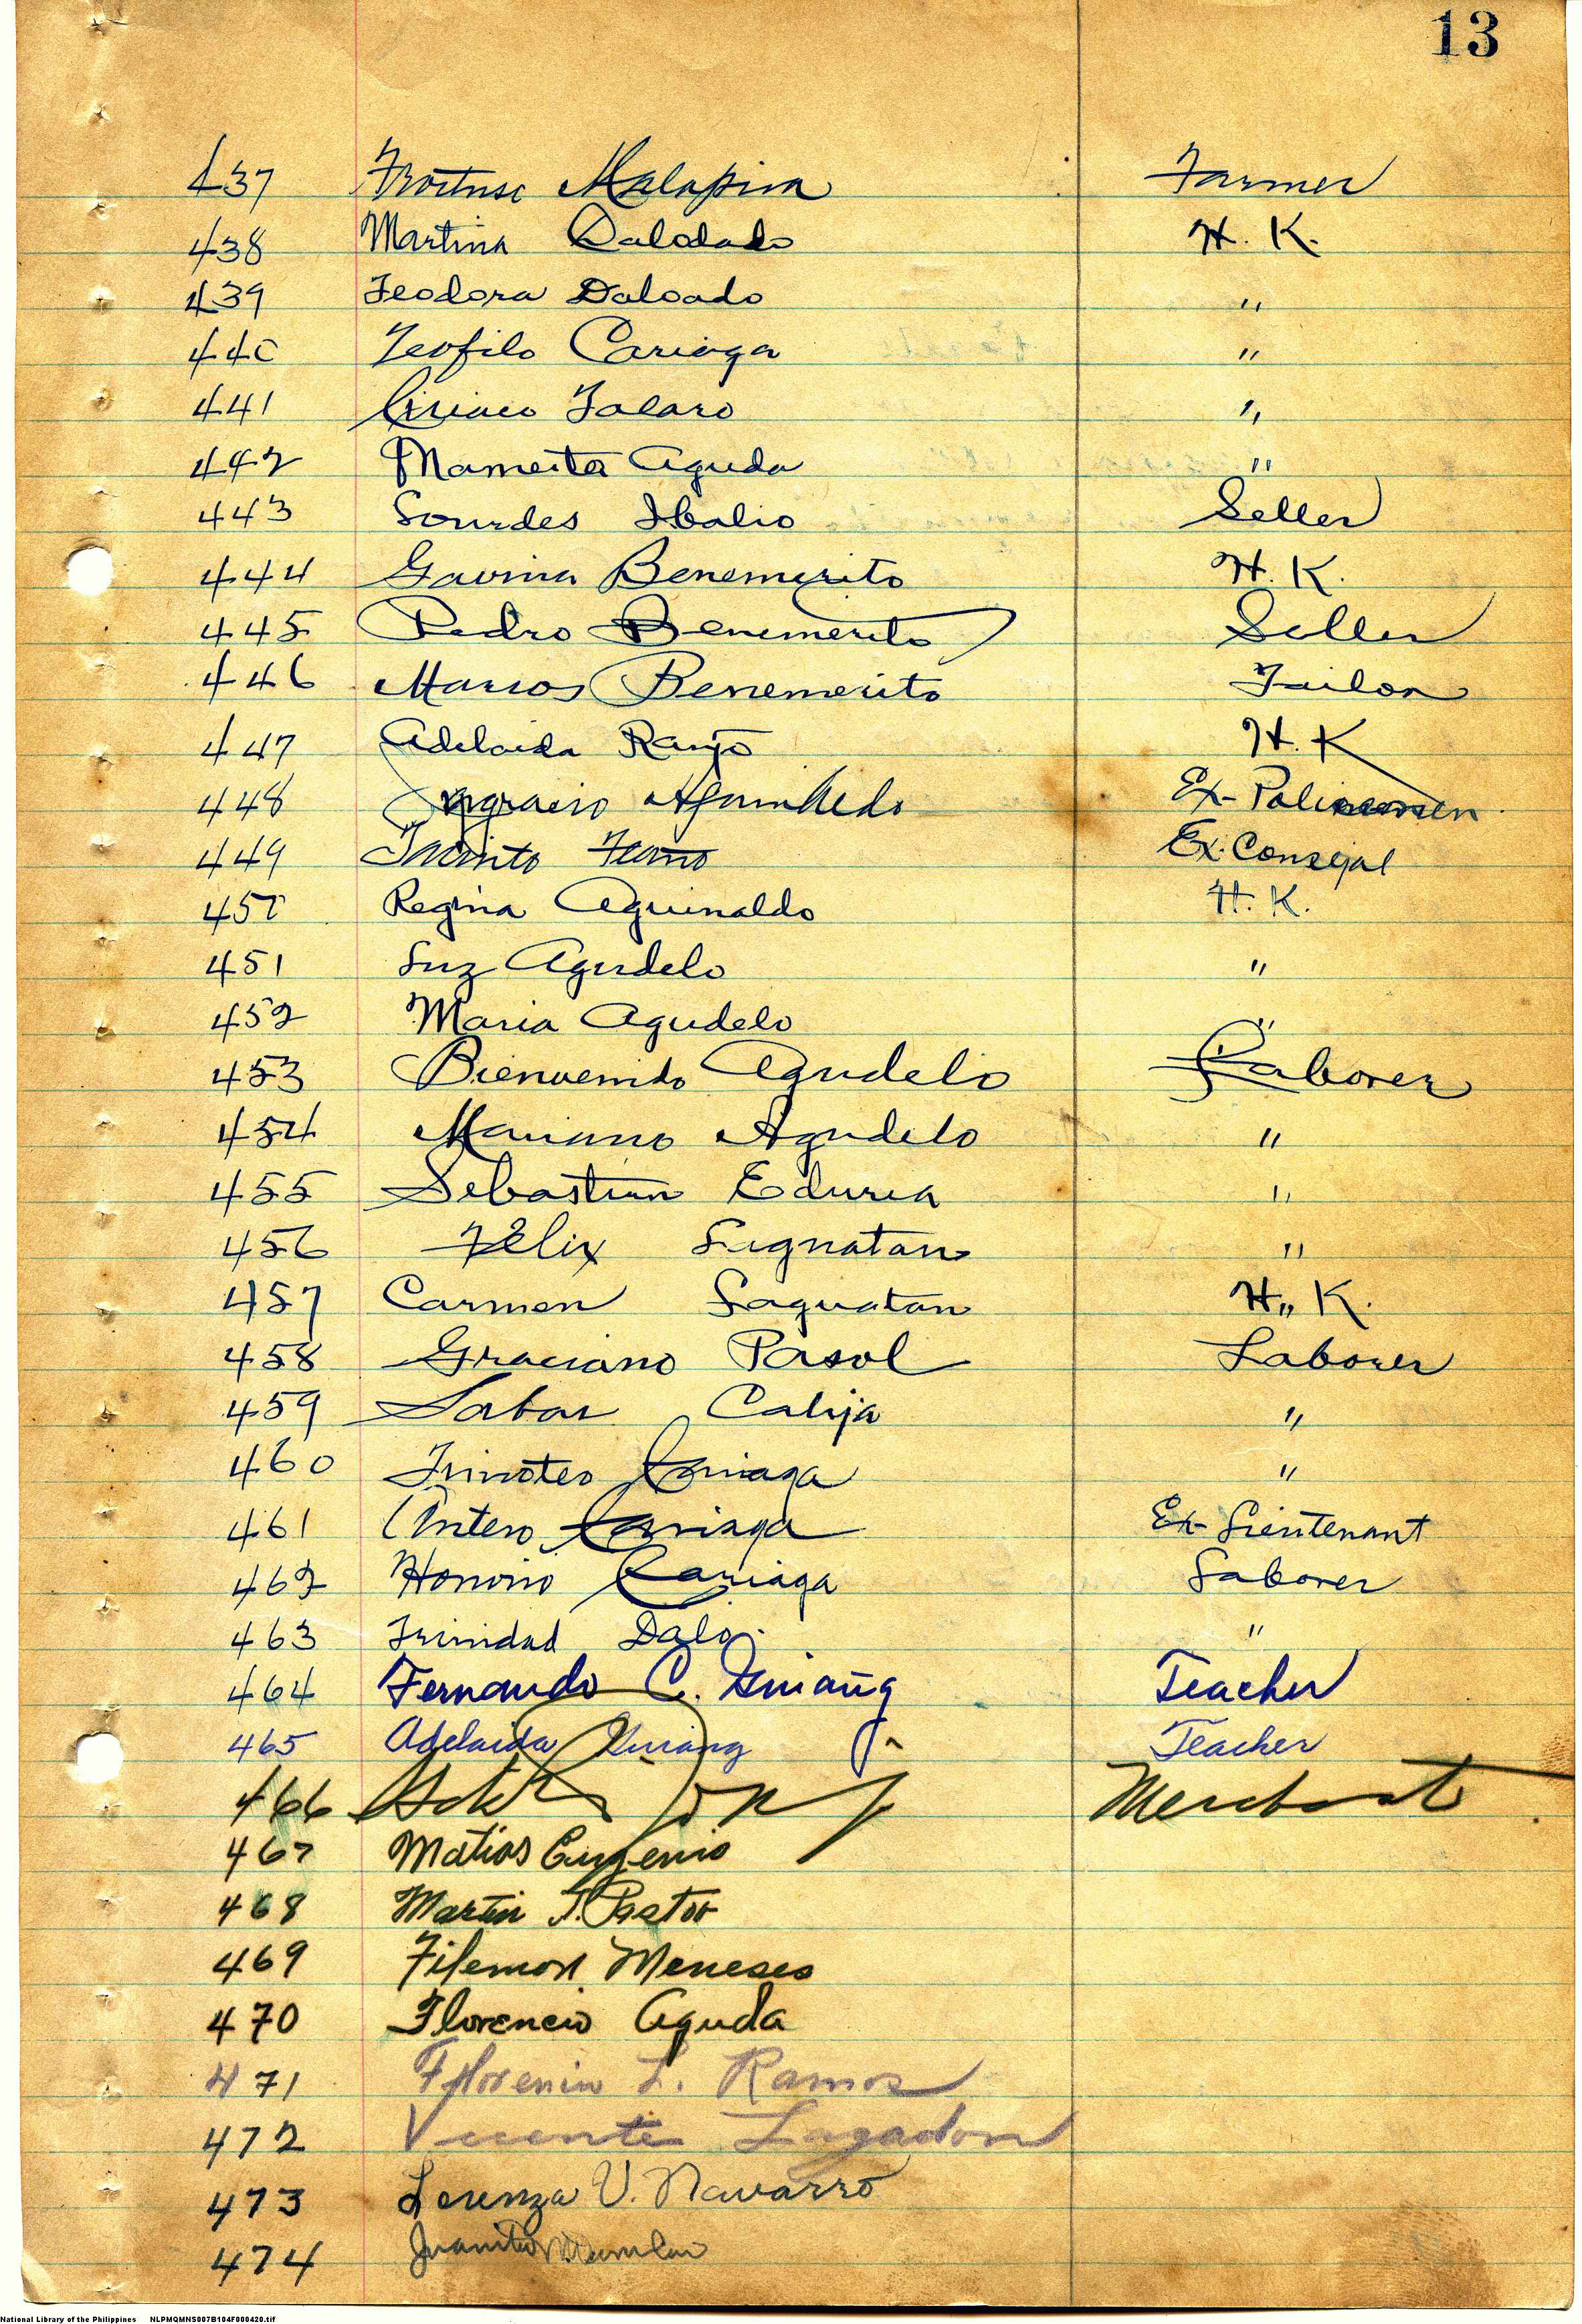 13
437 Malapira Farmer
438 Martina Dalodado H. K.
439 Teodora Daloado "
440 Teofilo Cariaga "
441 Ciriaco Talaro "
442 Mamerta Aguda "
443 Lourdes Ibalio Seller
444 Gavina Benemerito H. K.
445 Pedro Benemerito Seller
446 Marcos Benemerito Tailor
447 Adelaida Ranjo H. K
448 Ex-Policemen
449 Jacinto Ex. Consejal
450 Regina Aguinaldo H. K.
451 Luz Agudelo "
452 Maria Agudelo "
453 Bienvenido Agudelo Laborer
454 Mariano Agudelo "
455 Sebastian Eduria "
456 Felix Lagnatan "
457 Carmen Laguatan H. K.
458 Graciano Pasol Laborer
459 Calija "
460 Timoteo Cariaga "
461 Antero Cariaga Ex-Lieutenant
462 Honorio Cariaga Laborer
463 Trinidad Dalo. "
464 Fernando C. Guiang Teacher
465 Adelaida Guiang Teacher
466 Merchant
467 Matias Eugenio
468 Martin T. Pastor
469 Filemon Meneses
470 Florencio Aguda
471 Florencio L. Ramos
472 Vicente Lagadon
473 Lorenza V. Navarro
474 Juanito
National Library of the Philippines NLPMQMNS007B104F000420.tif